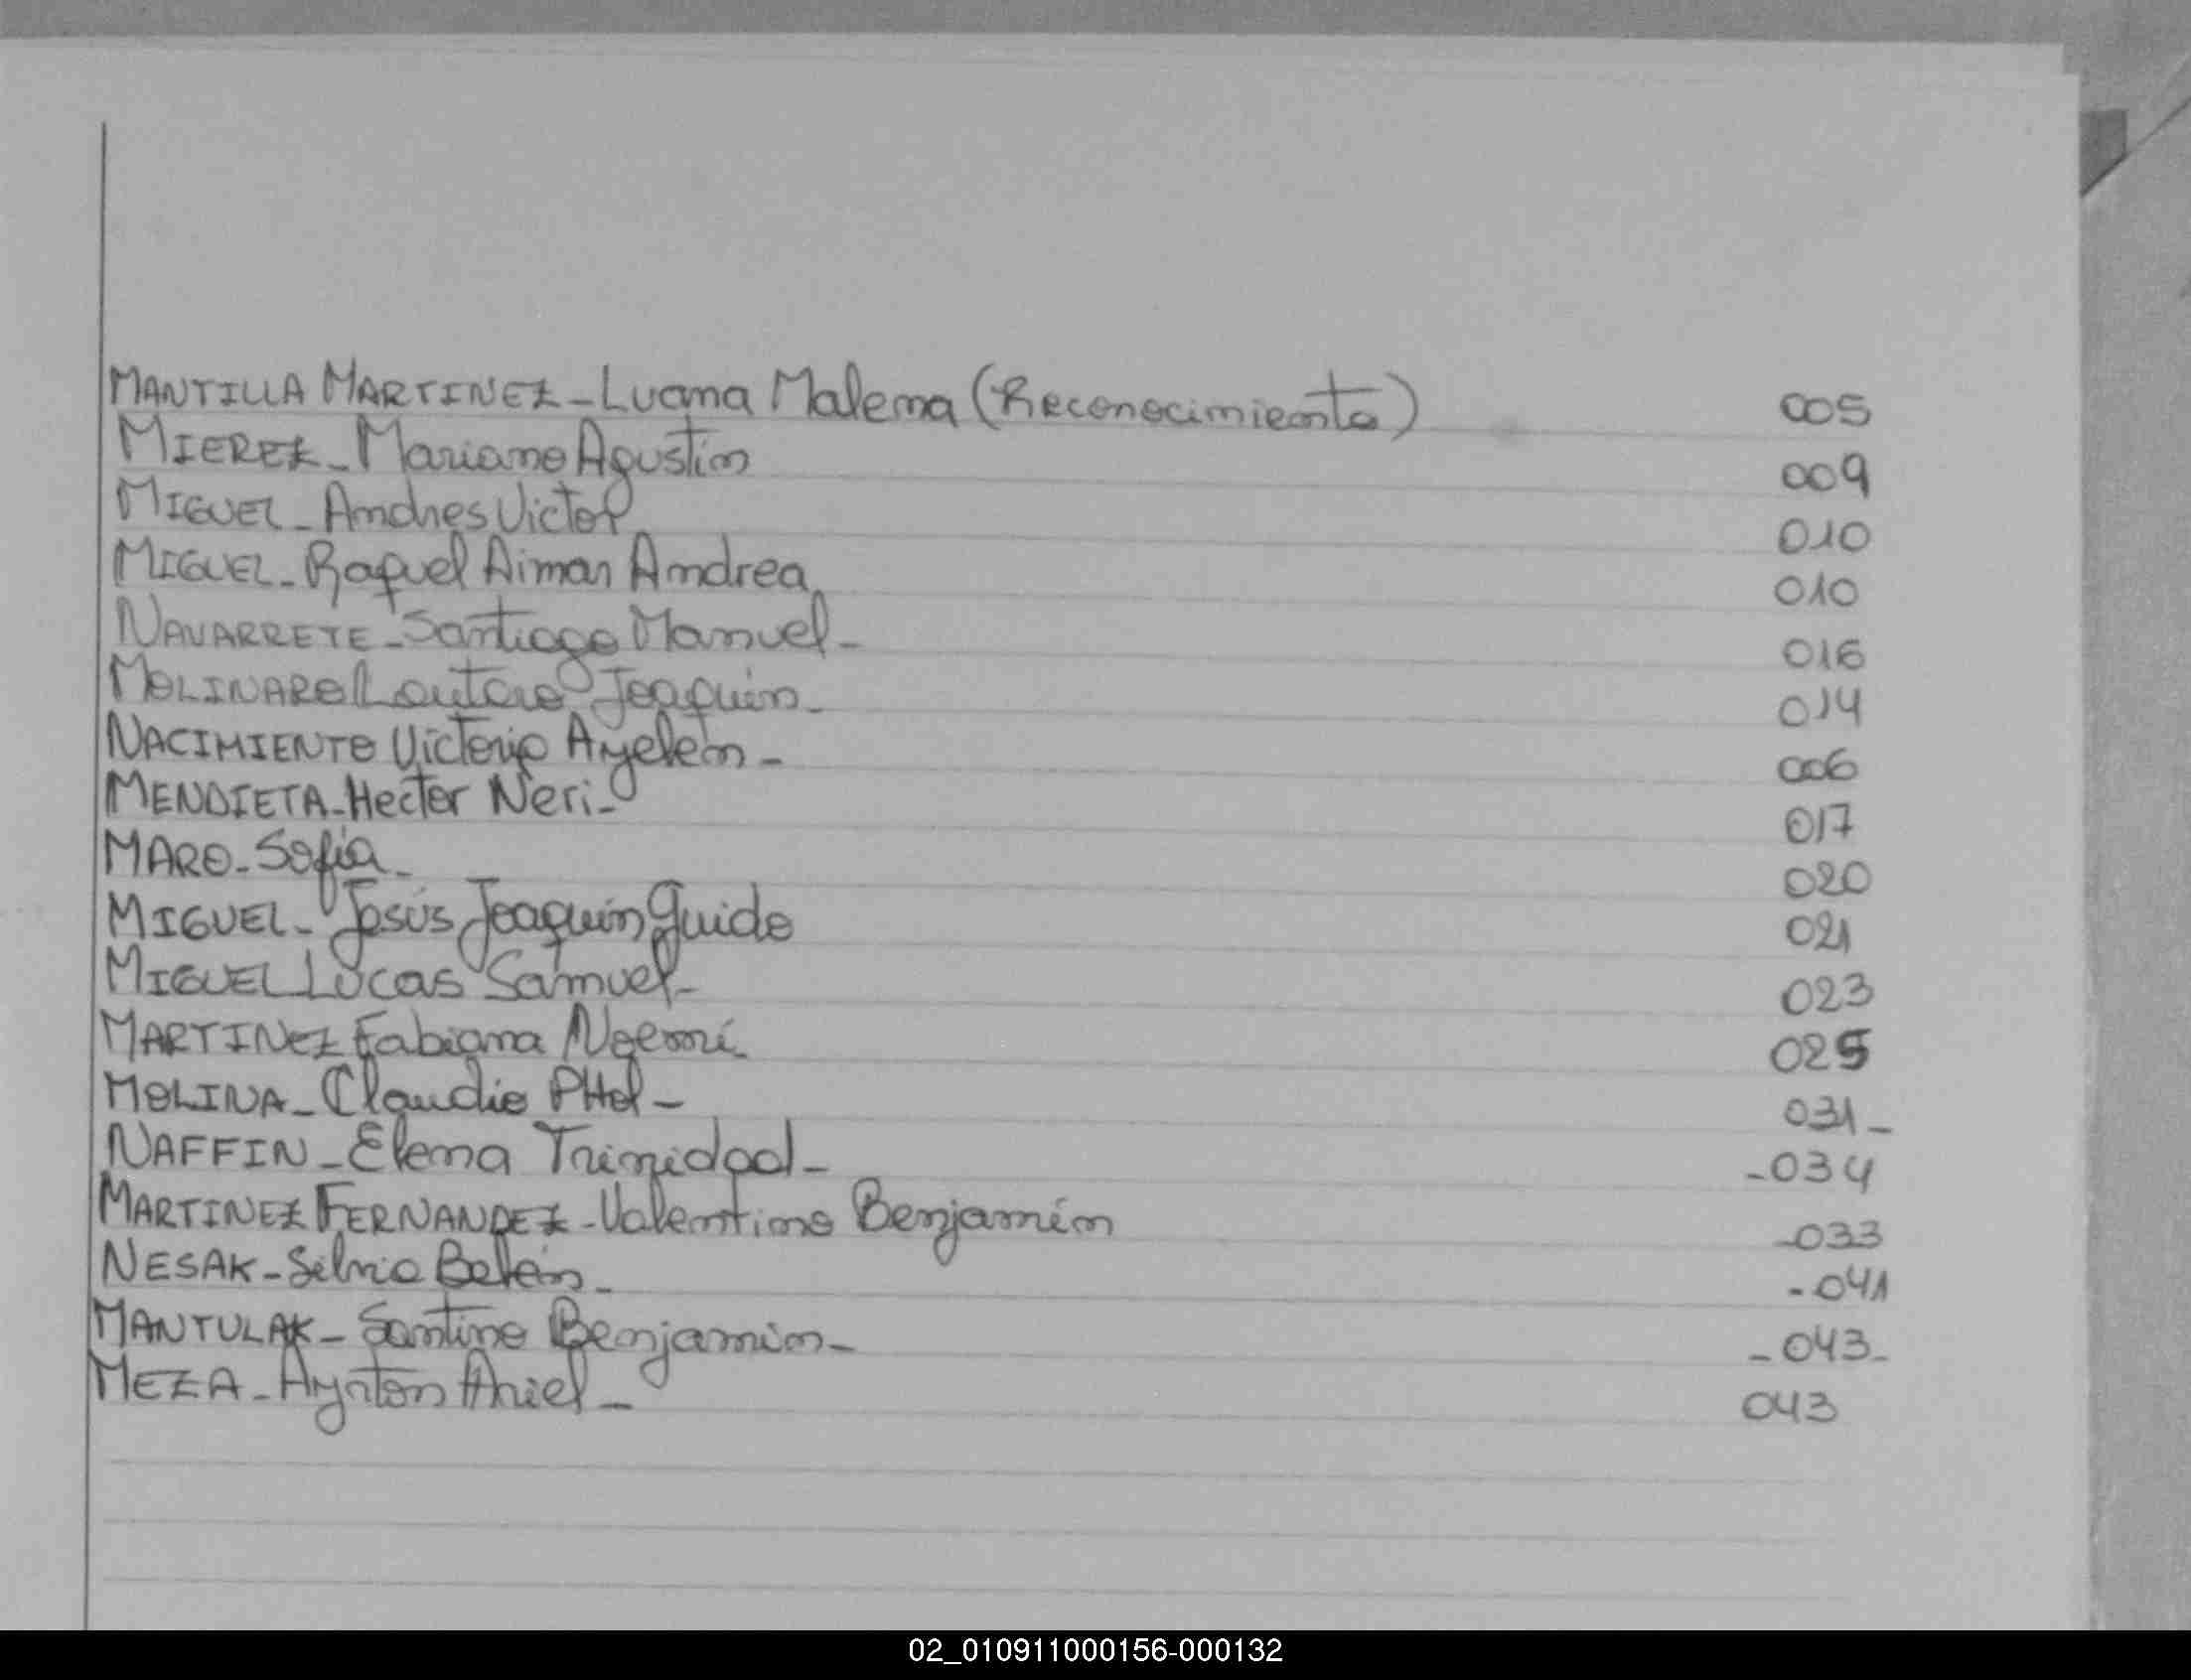 MANTILLA MARTINEZ - Luana Malena (Reconocimiento) 005
MIEREZ - Mariano Agustin 009
MIGUEL - Andres Victor 010
MIGUEL - Raquel Aiman Andrea 010
NAVARRETE - Santiago Manuel - 016
MOLINARO Lautaro Joaquin - 014
NACIMIENTO Victoria Ayelén - 006
MENDIETA - Hector Neri - 017
MARO - Sofia - 020
MIGUEL - Jesús Joaquín Guido 021
MIGUEL Lucas Samuel - 023
MARTINEZ Fabiana Noemí - 025
MOLINA - Claudio - 031 -
NAFFIN - Elena Trinidad - - 034
MARTINEZ FERNANDEZ - Valentino Benjamín - 033
NESAK - Silvia Belén - - 041
MANTULAK - Santino Benjamín - - 043 -
MEZA - Ayrton Ariel - 043
02_010911000156-000132